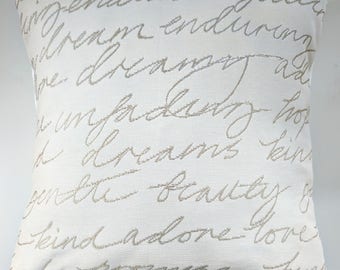 dream enduring
dreamy ad
unfading hop
dreams kin
gentle beauty
kind adore love